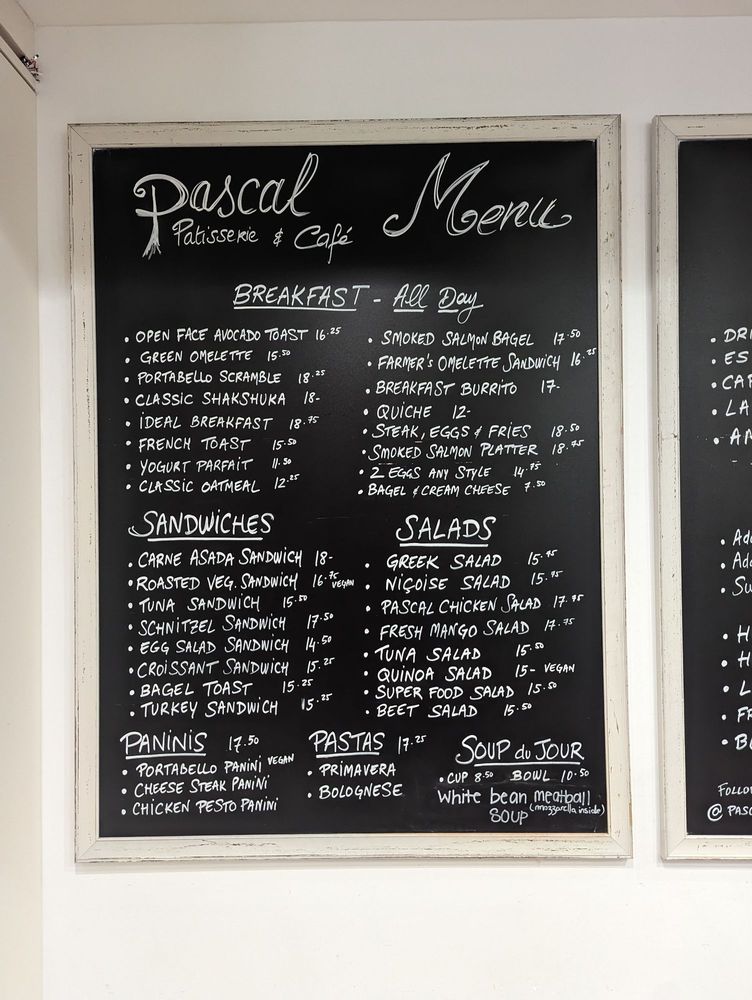 Pascal Menu
Patisserie & Café
BREAKFAST - All Day
• OPEN FACE AVOCADO TOAST 16.25
• GREEN OMELETTE 15.50
• PORTABELLO SCRAMBLE 18.25
• CLASSIC SHAKSHUKA 18-
• IDEAL BREAKFAST 18.75
• FRENCH TOAST 15.50
• YOGURT PARFAIT 11.50
• CLASSIC OATMEAL 12.25
• SMOKED SALMON BAGEL 17.50
• FARMER'S OMELETTE SANDWICH 16.25
• BREAKFAST BURRITO 17-
• QUICHE 12-
• STEAK, EGGS & FRIES 18.50
• SMOKED SALMON PLATTER 18.75
• 2 EGGS ANY STYLE 14.75
• BAGEL & CREAM CHEESE 7.50
SANDWICHES
• CARNE ASADA SANDWICH 18-
• ROASTED VEG. SANDWICH 16.75 VEGAN
• TUNA SANDWICH 15.50
• SCHNITZEL SANDWICH 17.50
• EGG SALAD SANDWICH 14.50
• CROISSANT SANDWICH 15.25
• BAGEL TOAST 15.25
• TURKEY SANDWICH 15.25
SALADS
• GREEK SALAD 15.75
• NIÇOISE SALAD 15.75
• PASCAL CHICKEN SALAD 17.75
• FRESH MANGO SALAD 17.75
• TUNA SALAD 15.50
• QUINOA SALAD 15- VEGAN
• SUPER FOOD SALAD 15.50
• BEET SALAD 15.50
PANINIS 17.50
• PORTABELLO PANINI VEGAN
• CHEESE STEAK PANINI
• CHICKEN PESTO PANINI
PASTAS 17.25
• PRIMAVERA
• BOLOGNESE
SOUP du JOUR
• CUP 8.50 BOWL 10.50
White bean meatball
(mozzarella inside)
SOUP
• DRI
• ES
• CAP
• LA
• AM
• Add
• Add
• Su
• H
• H
• L
• FR
• B
FOLLOW
@ PASC